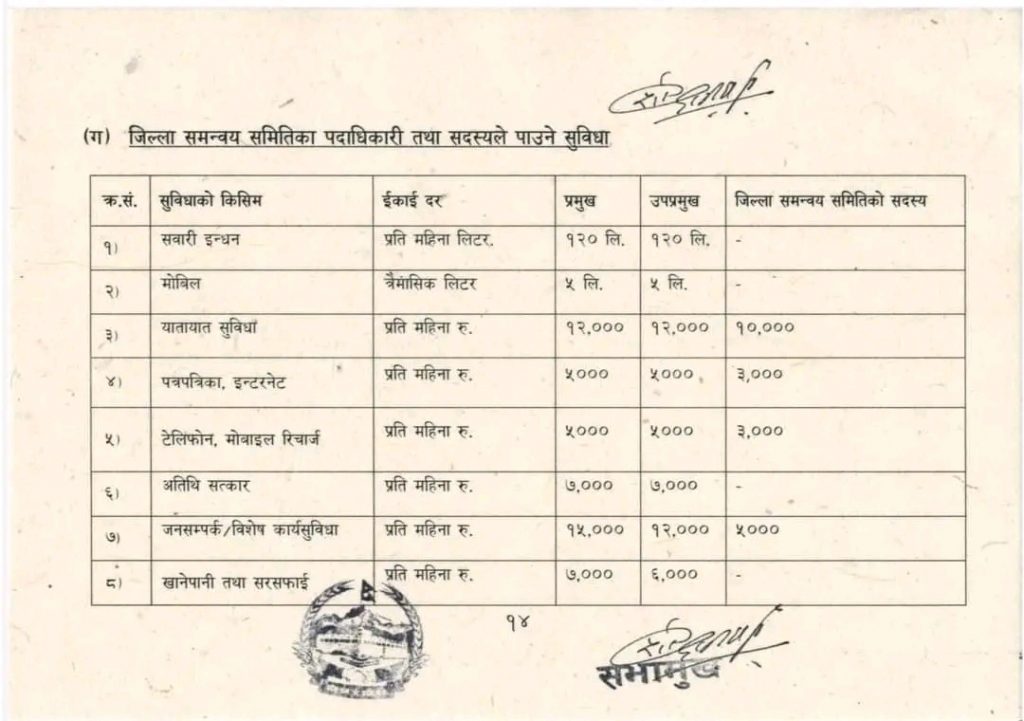 (ग) जिल्ला समन्वय समितिका पदाधिकारी तथा सदस्यले पाउने सुविधा
क्र.सं. सुविधाको किसिम ईकाई दर प्रमुख उपप्रमुख जिल्ला समन्वय समितिको सदस्य
१) सवारी इन्धन प्रति महिना लिटर. १२० लि. १२० लि. -
२) मोबिल त्रैमासिक लिटर ५ लि. ५ लि. -
३) यातायात सुविधा प्रति महिना रु. १२,००० १२,००० १०,०००
४) पत्रपत्रिका, इन्टरनेट प्रति महिना रु. ५००० ५००० ३,०००
५) टेलिफोन, मोबाइल रिचार्ज प्रति महिना रु. ५००० ५००० ३,०००
६) अतिथि सत्कार प्रति महिना रु. ७,००० ७,००० -
७) जनसम्पर्क/विशेष कार्यसुविधा प्रति महिना रु. १५,००० १२,००० ५०००
८) खानेपानी तथा सरसफाई प्रति महिना रु. ७,००० ६,००० -
१४
सभामुख